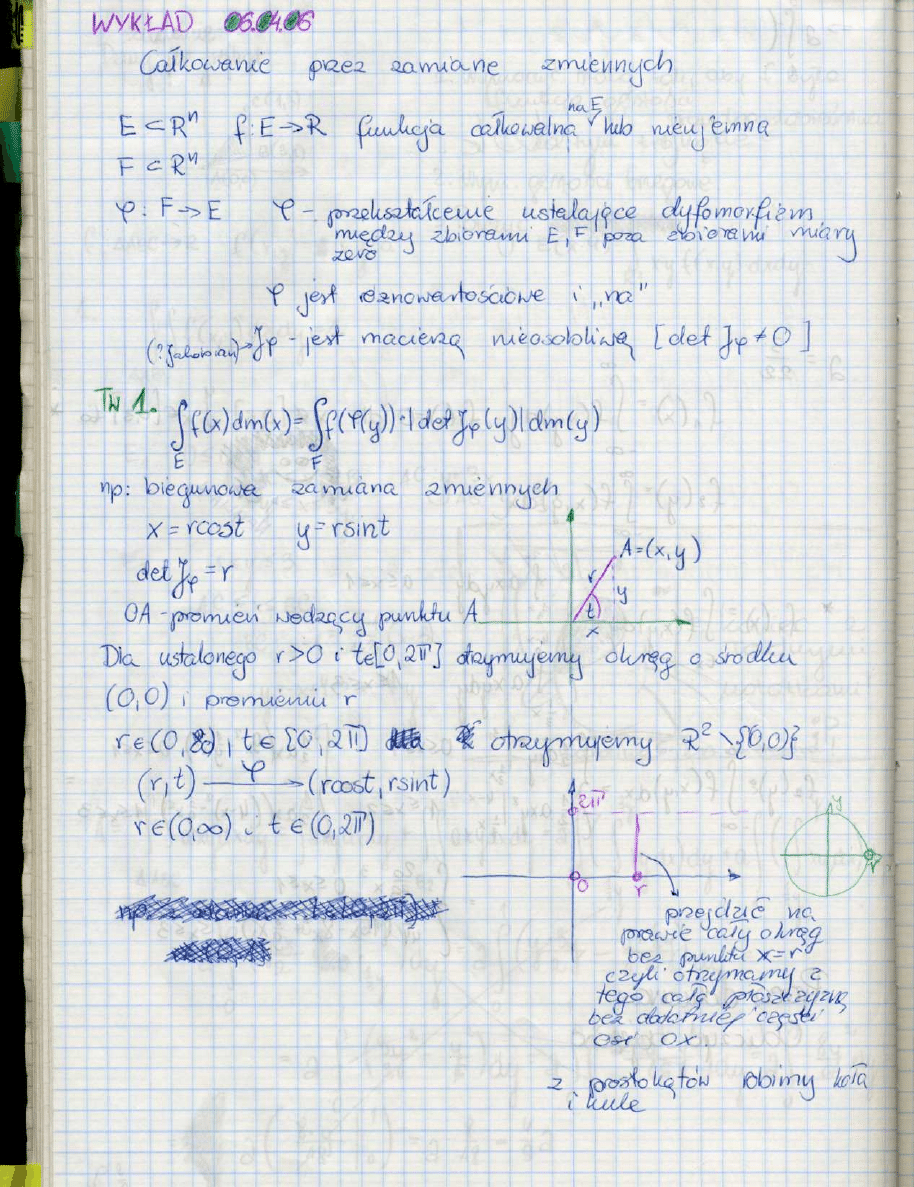 WYKŁAD 06.04.06
Całkowanie przez zamianę zmiennych
E ⊂ Rⁿ f: E → R funkcja całkowalna na E lub nieujemna
F ⊂ Rⁿ
φ: F → E φ - przekształcenie ustalające dyfomorfizm
między zbiorami E, F poza zbiorami miary
zero
φ jest różnowartościowe i „na"
(? Jakobian) → J_φ - jest macierzą nieosobliwą [det J_φ ≠ 0]
TW 1.
∫_E f(x)dm(x) = ∫_F f(φ(y))·|det J_φ(y)|dm(y)
np: biegunowa zamiana zmiennych
x = rcost y = rsint
det J_φ = r
A=(x,y)
r
y
t
x
OA - promień wodzący punktu A
Dla ustalonego r>0 i t∈[0,2π] otrzymujemy okrąg o środku
(0,0) i promieniu r
r∈(0,∞), t∈[0,2π] otrzymujemy R² \{0,0)}
(r,t) —φ→ (rcost, rsint)
r∈(0,∞) i t∈(0,2π)
2π
0
r
y
r
przejdzie na
prawie cały okrąg
bez punktu x=r
czyli otrzymamy z
tego całą płaszczyznę
bez dodatniej części
osi OX
z prostokątów robimy koła
i kule